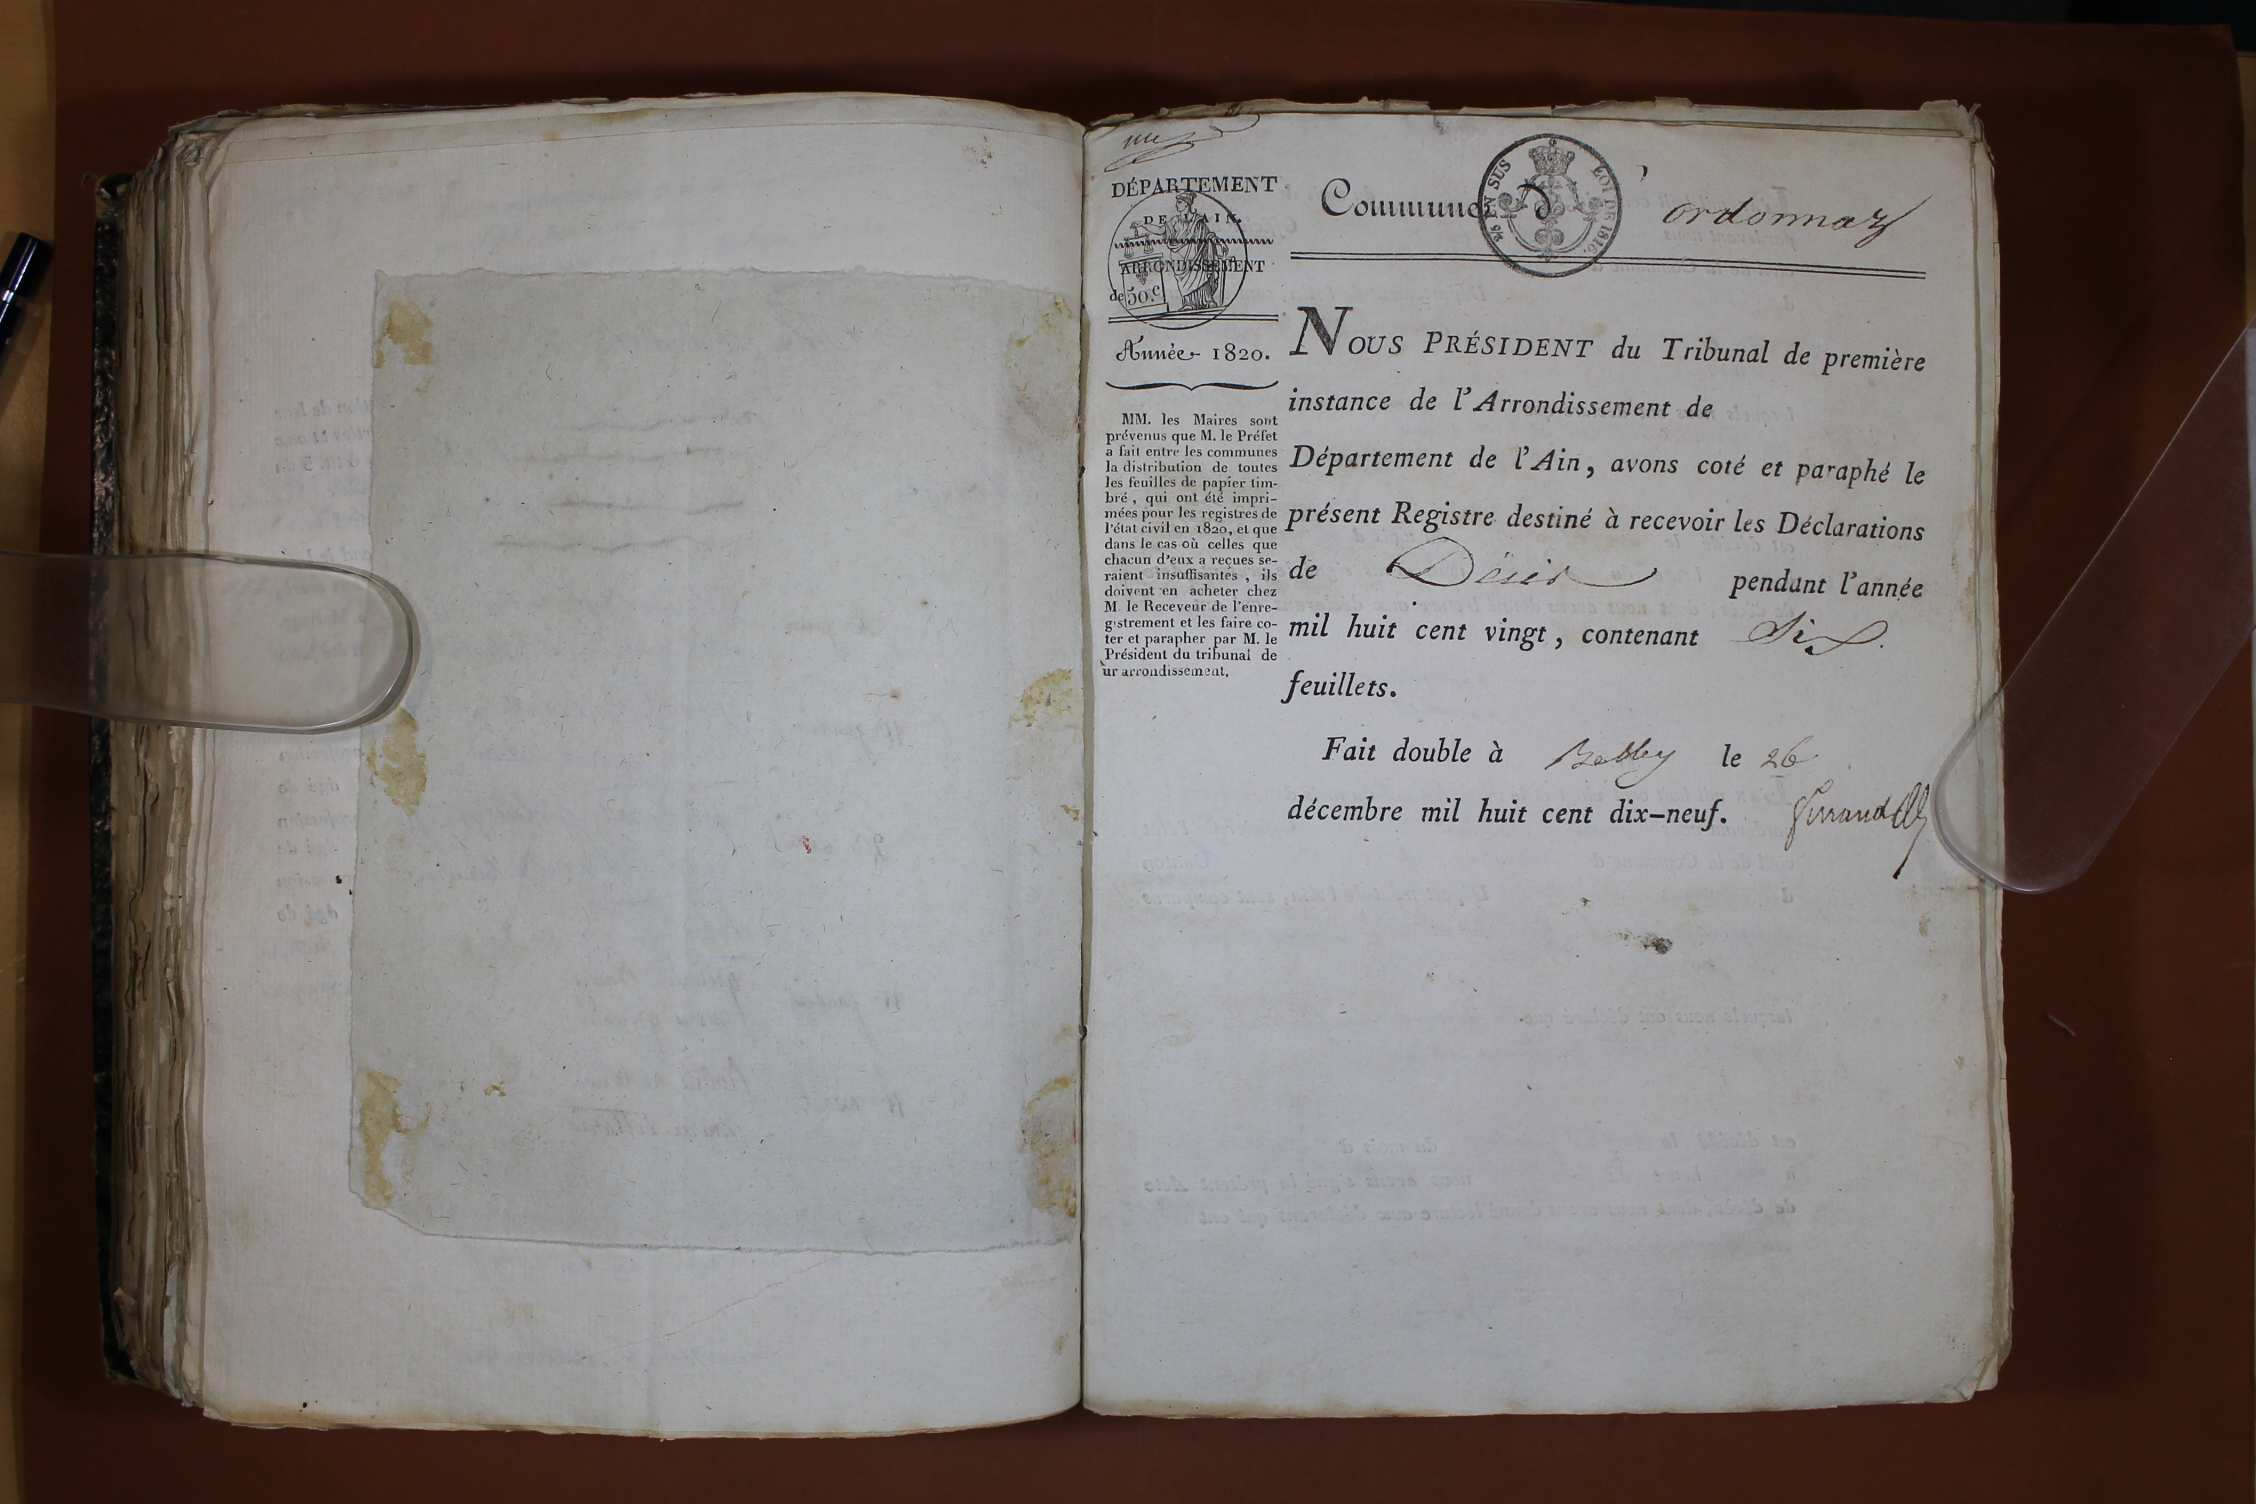 DÉPARTEMENT
DE L'AIN.
ARRONDISSEMENT
de 50.c
Année 1820.
MM. les Maires sont
prévenus que M. le Préfet
a fait entre les communes
la distribution de toutes
les feuilles de papier tim-
bré, qui ont été impri-
mées pour les registres de
l'état civil en 1820, et que
dans le cas où celles que
chacun d'eux a reçues se-
raient insuffisantes, ils
doivent en acheter chez
M. le Receveur de l'enre-
gistrement et les faire co-
ter et parapher par M. le
Président du tribunal de
ur arrondissement.
Commune d' ordonnaz
EN SUS LOI DE 1816.
NOUS PRÉSIDENT du Tribunal de première
instance de l'Arrondissement de
Département de l'Ain, avons coté et paraphé le
présent Registre destiné à recevoir les Déclarations
de Décès pendant l'année
mil huit cent vingt, contenant Six
feuillets.
Fait double à Belley le 26
décembre mil huit cent dix-neuf.